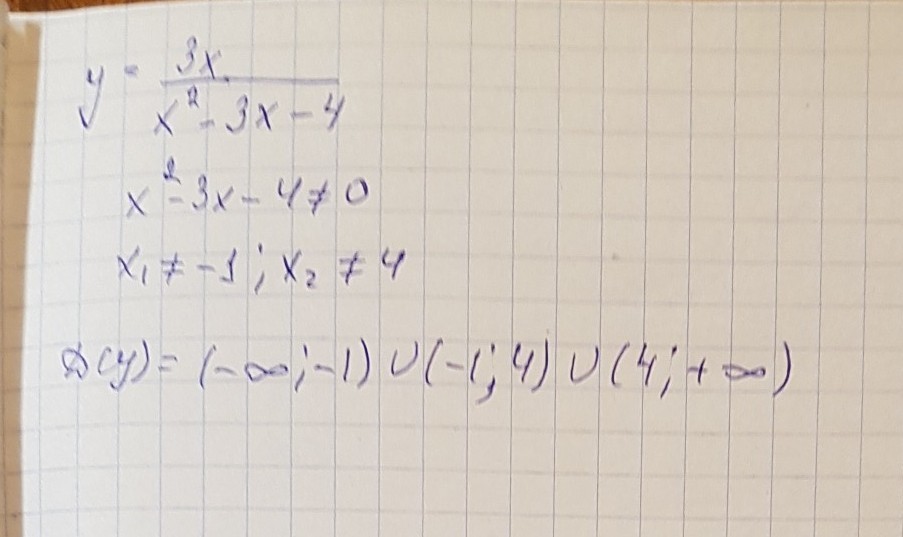 y = 3x / x² - 3x - 4
x² - 3x - 4 ≠ 0
x₁ ≠ -1 ; x₂ ≠ 4
D(y) = (-∞; -1) ∪ (-1; 4) ∪ (4; +∞)